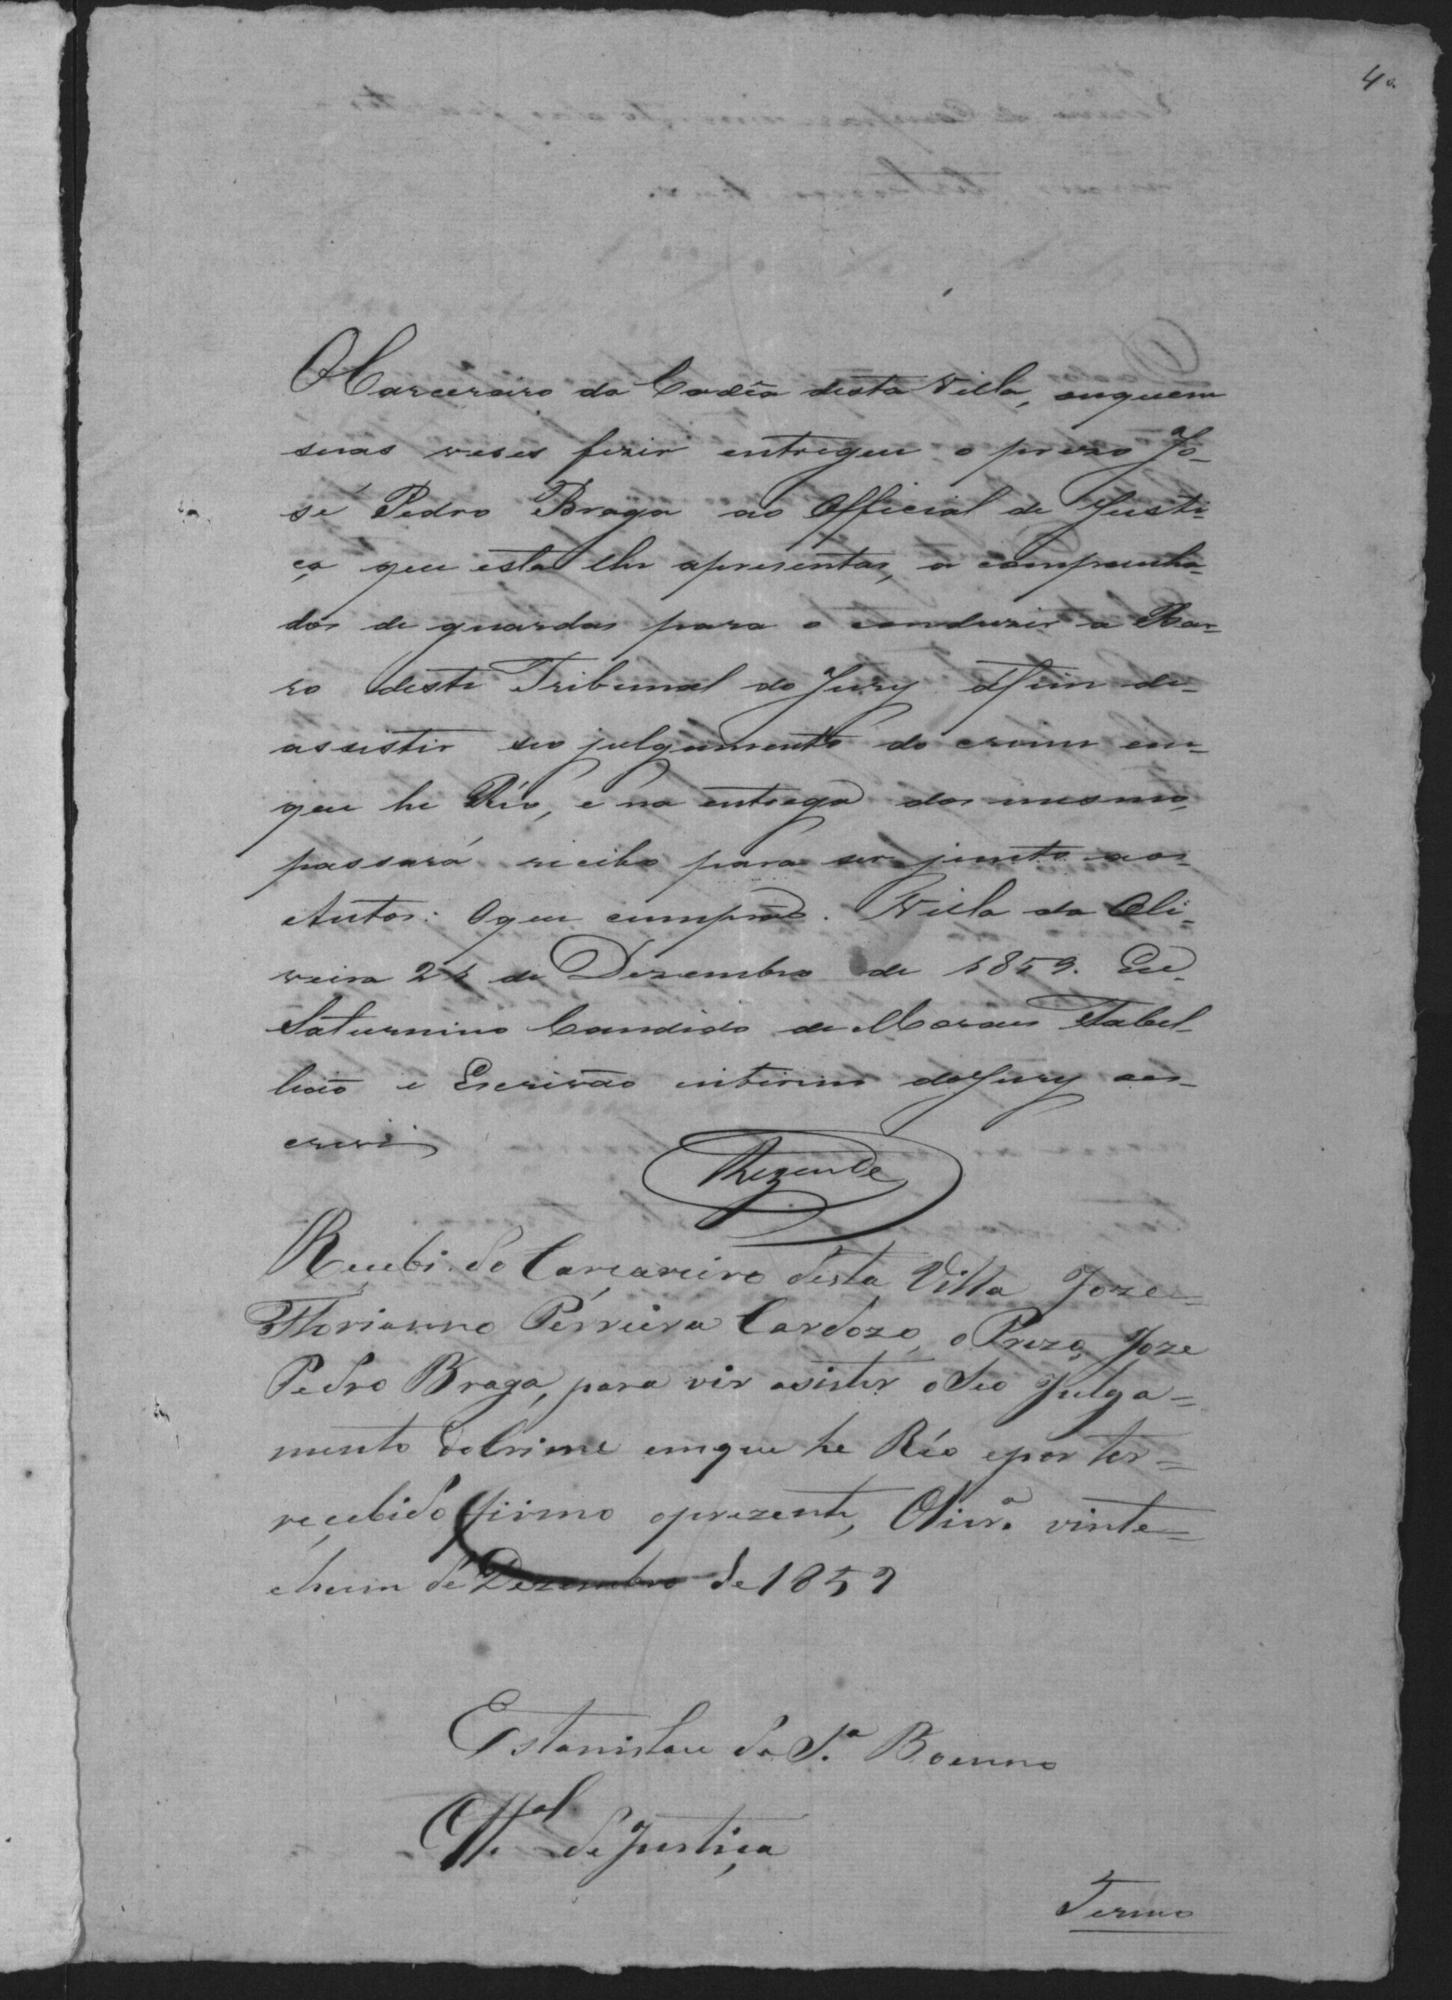 40
O Carcereiro da Cadêa desta Villa, ouquem
suas veses fizer entregue o prezo Jo-
sé Pedro Braga ao Official de Justi-
ça que esta lhe apresentar, a companha-
dos de guardas para o conduzir a Bar-
ra deste Tribunal do Jury afim de
assistir seo julgamento do crime em-
que he Réo, e na entrega dos mesmos,
passará recibo para ser junto aos
Autos: Oque cumprão. Villa da Oli-
veira 21 de Dezembro de 1859. Eu
Saturnino Candido de Moraes Tabel-
lião e Escrivão interino do Jury oes-
crevi
Rezende
Recebi do Carcareiro desta Villa Joze
Florianno Perreira Cardozo, o Prezo, Joze
Pedro Braga, para vir asistir o Seo Julga=
mento do Crime emque he Réo epor ter=
recebido firmo oprezente, Olivrª vinte=
ehum de Dezembro de 1859
Estanislau da Sª Boenno
Offal de Justiça
Termo